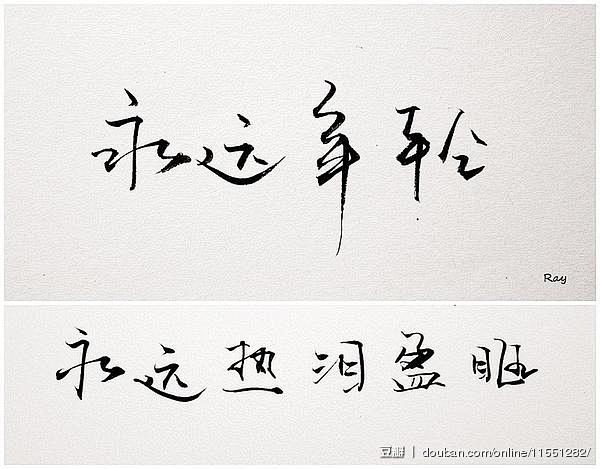 永远年轻
Ray
永远热泪盈眶
豆瓣 | douban.com/online/11551282/